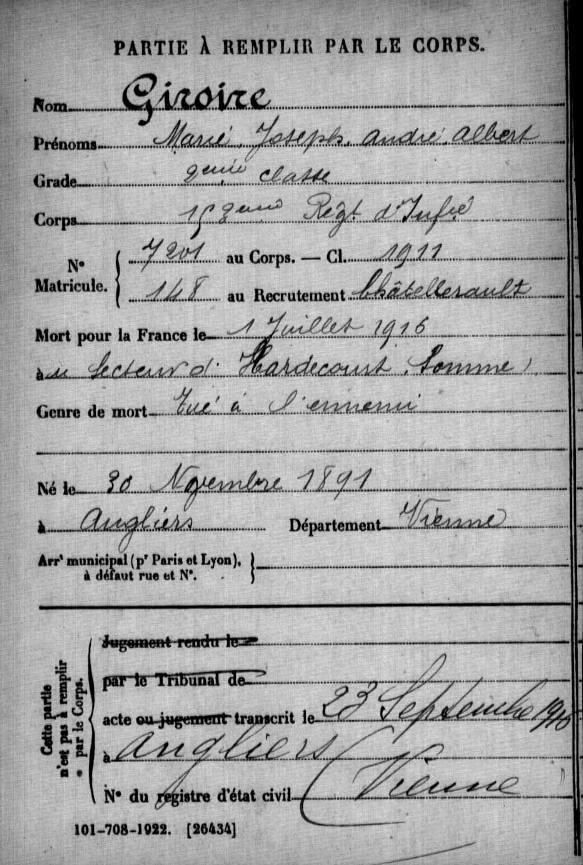 PARTIE À REMPLIR PAR LE CORPS.
Nom Giroire
Prénoms Marie, Joseph, andré, albert
Grade 2eme classe
Corps Régt d'Infie
7201 au Corps. — Cl. 1911
N° Matricule.
148 au Recrutement Châtellerault
Mort pour la France le 1 Juillet 1916
au Secteur d' Hardecourt (Somme)
Genre de mort Tué à l'ennemi
Né le 30 Novembre 1891
à Angliers Département Vienne
Arrt municipal (pr Paris et Lyon),
à défaut rue et N°.
Cette partie n'est pas à remplir par le Corps.
Jugement rendu le
par le Tribunal de
acte ou jugement transcrit le 23 Septembre 1916
à Angliers
N° du registre d'état civil (Vienne
101-708-1922. [26434]